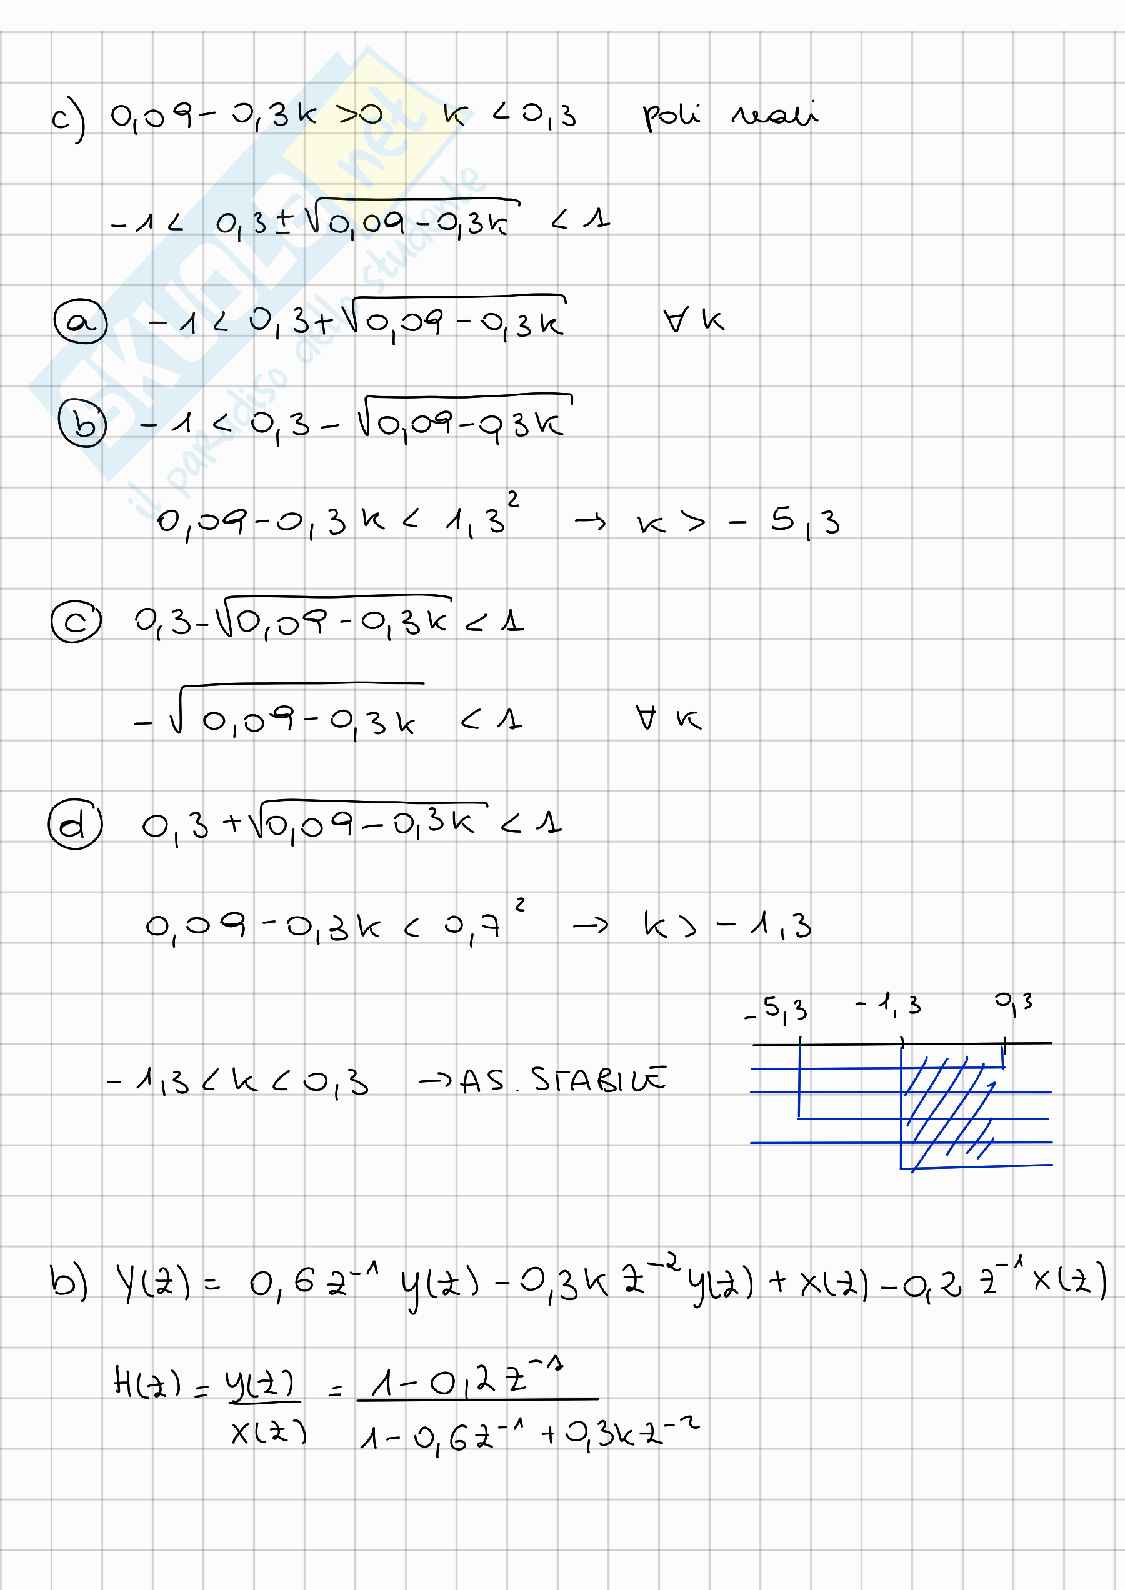 c) 0,09 - 0,3k > 0 k < 0,3 poli reali
-1 < 0,3 ± √(0,09 - 0,3k) < 1
ⓐ -1 < 0,3 + √(0,09 - 0,3k) ∀ k
ⓑ -1 < 0,3 - √(0,09 - 0,3k)
0,09 - 0,3k < 1,3² → k > - 5,3
ⓒ 0,3 - √(0,09 - 0,3k) < 1
- √(0,09 - 0,3k) < 1 ∀ k
ⓓ 0,3 + √(0,09 - 0,3k) < 1
0,09 - 0,3k < 0,7² → k > - 1,3
-5,3 -1,3 0,3
-1,3 < k < 0,3 → AS. STABILE
b) Y(z) = 0,6 z⁻¹ y(z) - 0,3k z⁻² y(z) + x(z) - 0,2 z⁻¹ x(z)
H(z) = y(z)/x(z) = (1 - 0,2 z⁻¹)/(1 - 0,6 z⁻¹ + 0,3k z⁻²)
SKUOLA.net
il paradiso dello studente